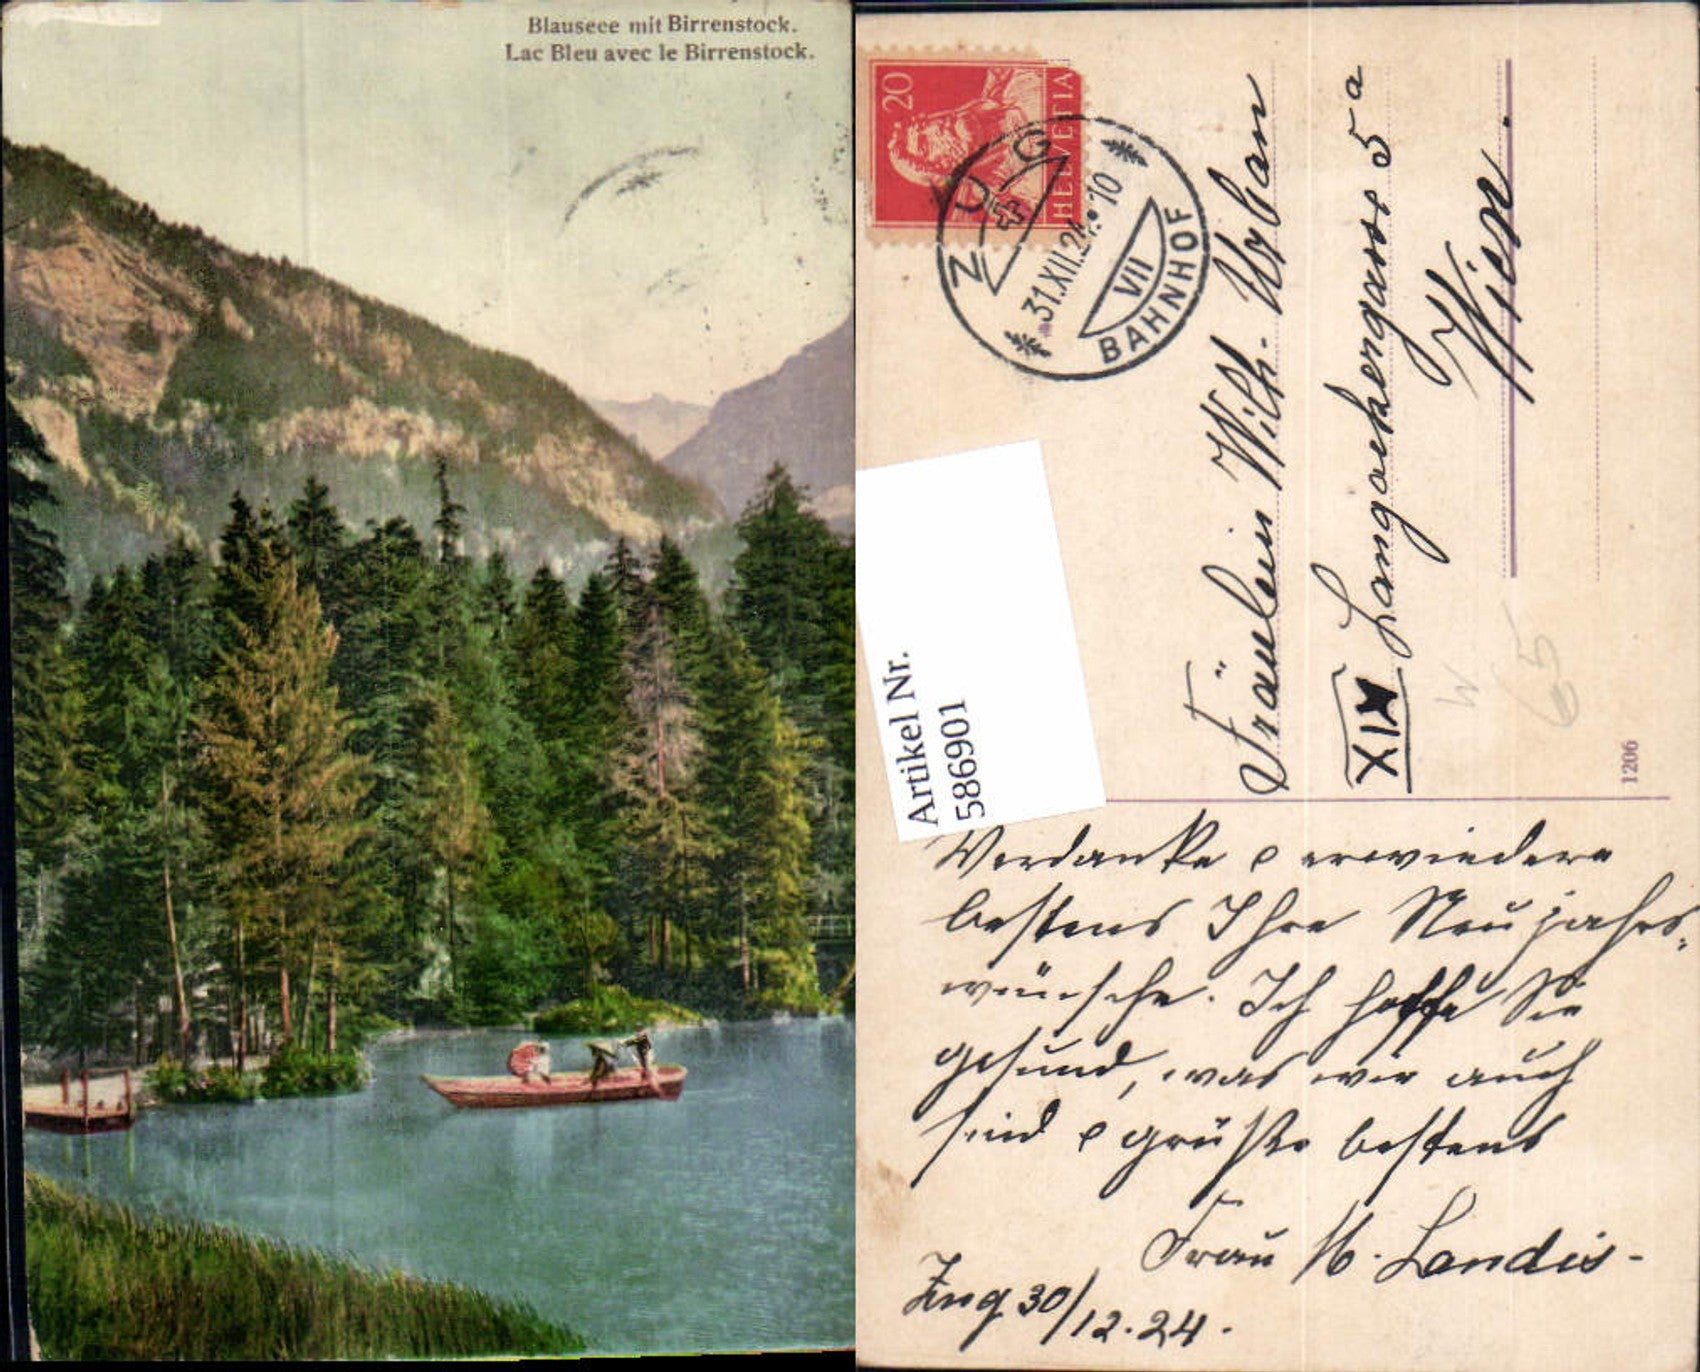 Blauseee mit Birrenstock.
Lac Bleu avec le Birrenstock.
20
HELVETIA
ZUG
31.XII.24. 10
VII
BAHNHOF
Fräulein Wilh. Urban
XIX Langackergasse 5a
Wien.
W
65
1206
Artikel Nr.
586901
Verdanke & erwiedere
bestens Ihre Neujahrs-
wünsche. Ich hoffe Sie
gesund, was wir auch
sind & grüße bestens
Frau M. Landis-
Zug 30/12.24.